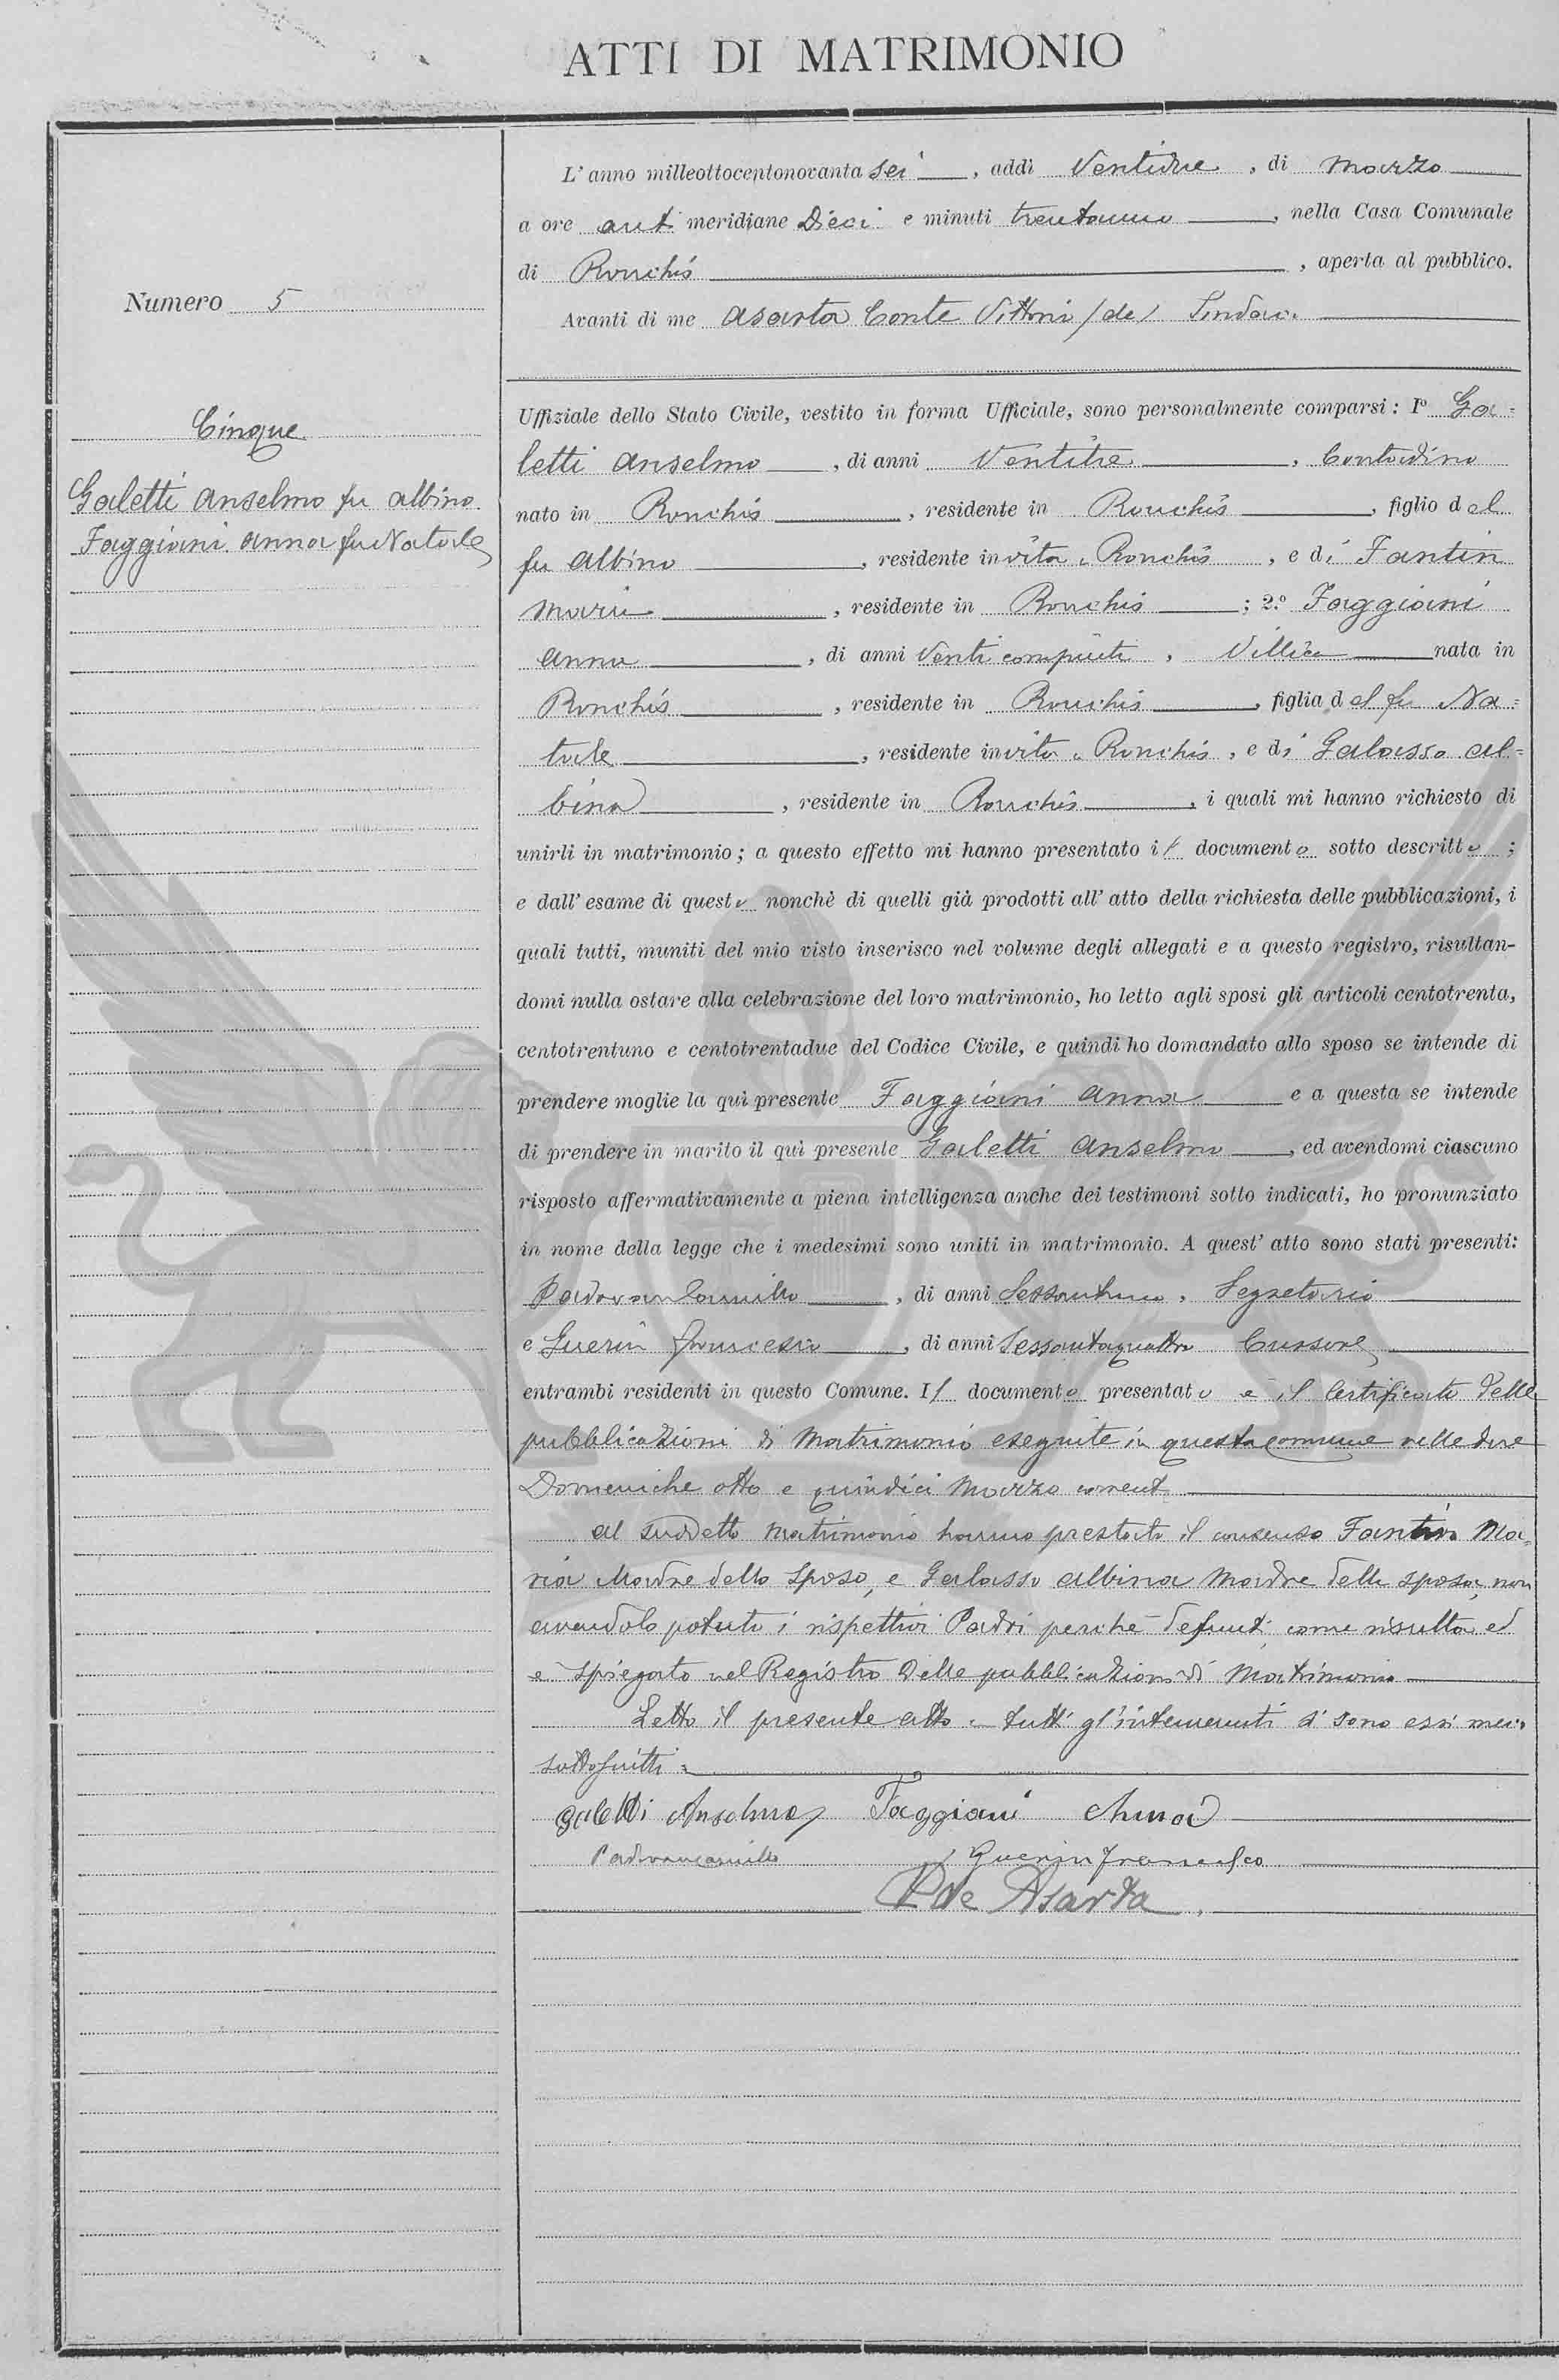 ATTI DI MATRIMONIO
Numero 5
Cinque
Galetti Anselmo fu Albino
Faggiani Anna fu Natale
L'anno milleottocentonovanta sei, addì Ventidue, di Marzo
a ore anti meridiane Dieci e minuti trentauno, nella Casa Comunale
di Ronchis, aperta al pubblico.
Avanti di me Asarta Conte Vittorio /de/ Sindaco
Uffiziale dello Stato Civile, vestito in forma Ufficiale, sono personalmente comparsi: 1º Ga=
letti Anselmo, di anni Ventitre, Contadino
nato in Ronchis, residente in Ronchis, figlio del
fu Albino, residente in vita a Ronchis, e di Fantin
Maria, residente in Ronchis; 2.º Faggiani
Anna, di anni Venti compiuti, Villica nata in
Ronchis, residente in Ronchis, figlia del fu Na=
tale, residente in vita a Ronchis, e di Galasso Al=
bina, residente in Ronchis, i quali mi hanno richiesto di
unirli in matrimonio; a questo effetto mi hanno presentato il documento sotto descritto;
e dall'esame di questo nonchè di quelli già prodotti all'atto della richiesta delle pubblicazioni, i
quali tutti, muniti del mio visto inserisco nel volume degli allegati e a questo registro, risultan-
domi nulla ostare alla celebrazione del loro matrimonio, ho letto agli sposi gli articoli centotrenta,
centotrentuno e centotrentadue del Codice Civile, e quindi ho domandato allo sposo se intende di
prendere moglie la quì presente Faggiani Anna e a questa se intende
di prendere in marito il quì presente Galetti Anselmo, ed avendomi ciascuno
risposto affermativamente a piena intelligenza anche dei testimoni sotto indicati, ho pronunziato
in nome della legge che i medesimi sono uniti in matrimonio. A quest'atto sono stati presenti:
Padovan Camillo, di anni Sessantuno, Segretario
e Guerin Francesco, di anni Sessantaquattro Cursore
entrambi residenti in questo Comune. Il documento presentato è il Certificato delle
pubblicazioni di Matrimonio eseguite in questa Comune nelle due
Domeniche otto e quindici Marzo corrent
Al suddetto Matrimonio hanno prestato il consenso Fantin Ma=
ria Madre dello Sposo, e Galasso Albina Madre della sposa, non
avendolo potuto i rispettivi Padri perchè defunti, come risulta ed
è spiegato nel Registro delle pubblicazioni di Matrimonio
Letto il presente atto a tutti gl'intervenuti si sono essi meco
sottoscritti =
Galetti Anselmo Faggiani Anna
Padovan Camillo Guerin Francesco
V de Asarta